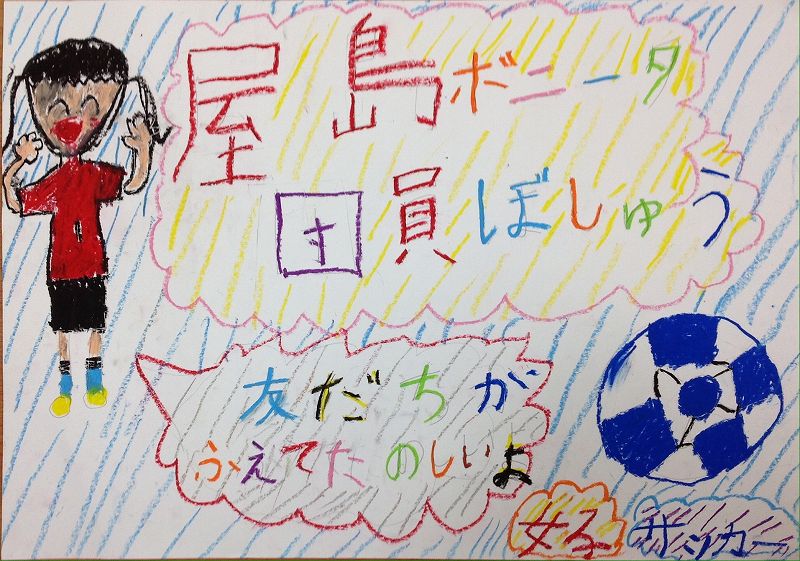 屋島ボニータ
団員ぼしゅう
友だちが
ふえてたのしいよ
女子サッカー